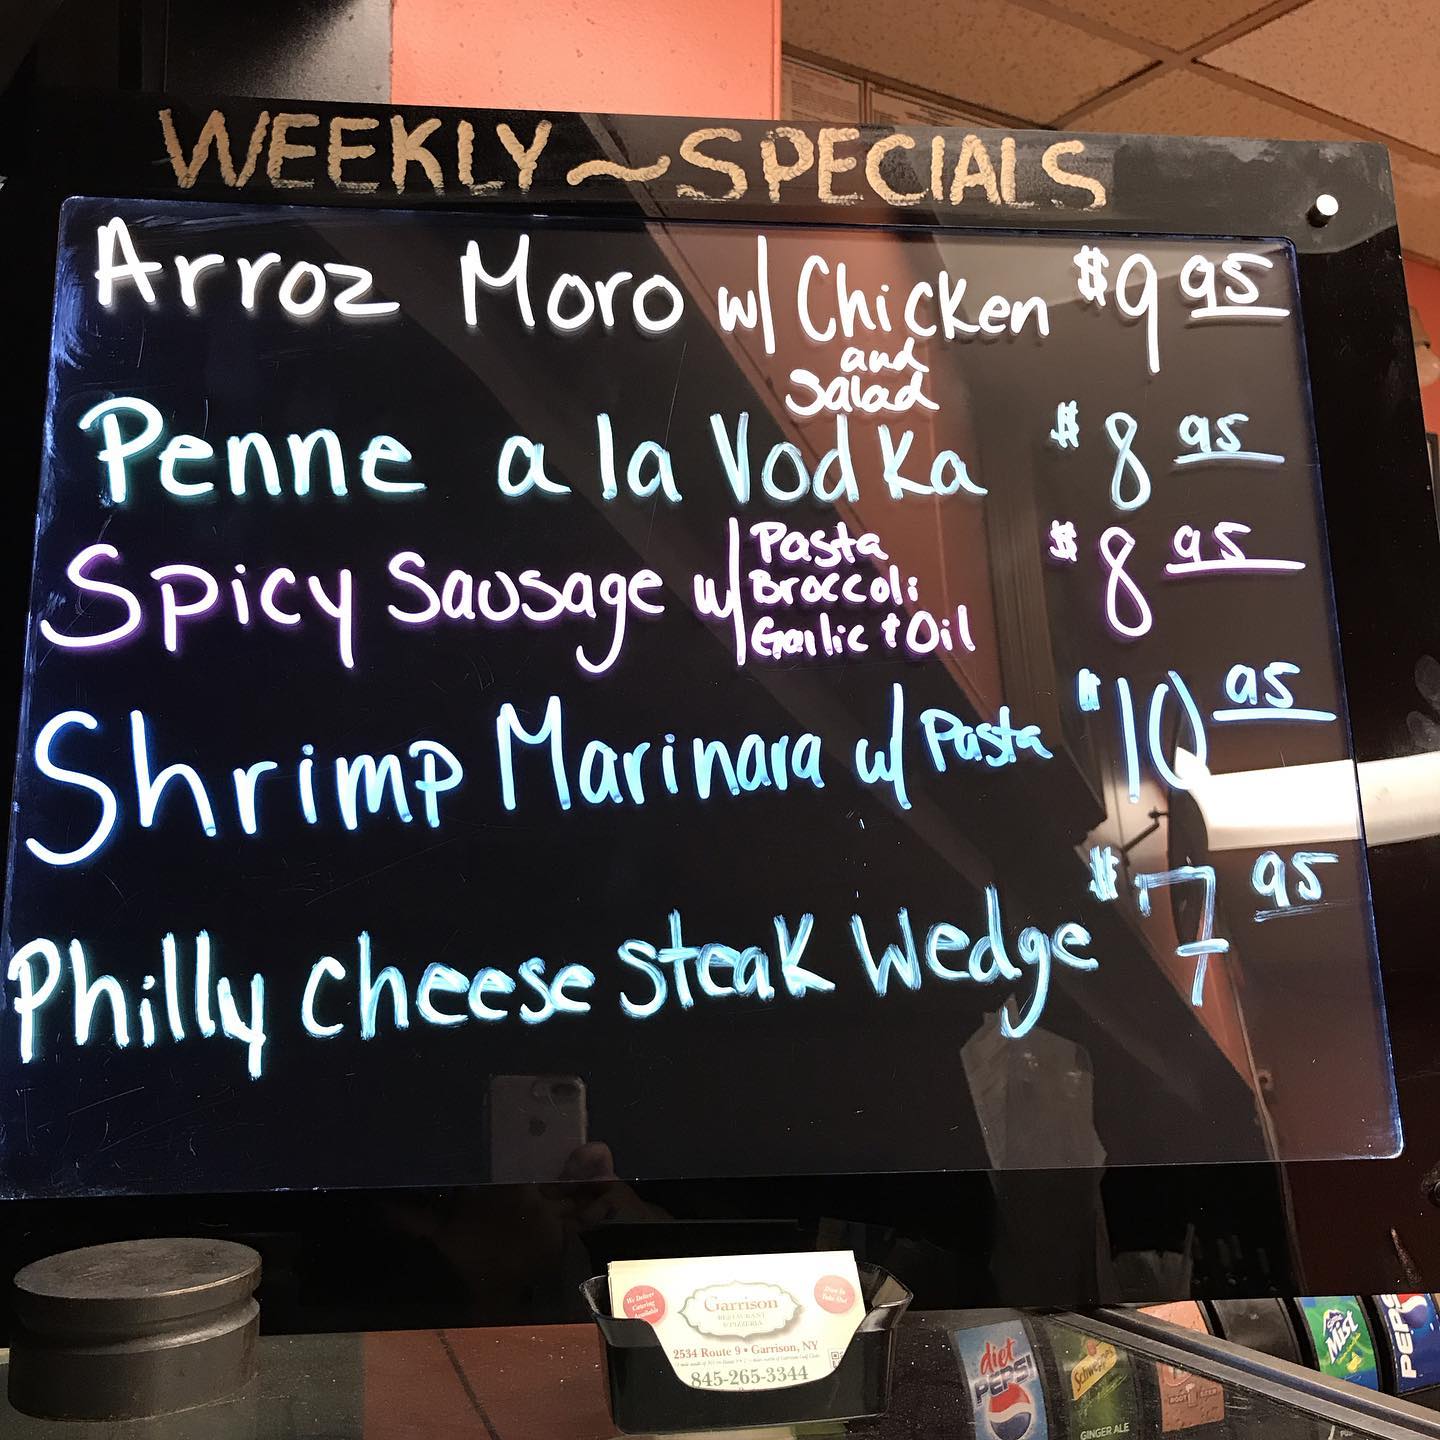 WEEKLY ~ SPECIALS
Arroz Moro w/ Chicken $9 95
and
Salad
Penne a la Vodka $8 95
Spicy Sausage w/ Pasta $8 95
Broccoli
Garlic + Oil
Shrimp Marinara w/ Pasta $10 95
Philly Cheese Steak Wedge $7 95
We Deliver
Catering
Available
Garrison
RESTAURANT
& PIZZERIA
Dine In
Take Out
2534 Route 9 • Garrison, NY
845-265-3344
diet
PEPSI
Schweppes
GINGER ALE
MIST
PEPSI